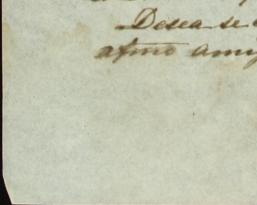 Desea se
afmo amig